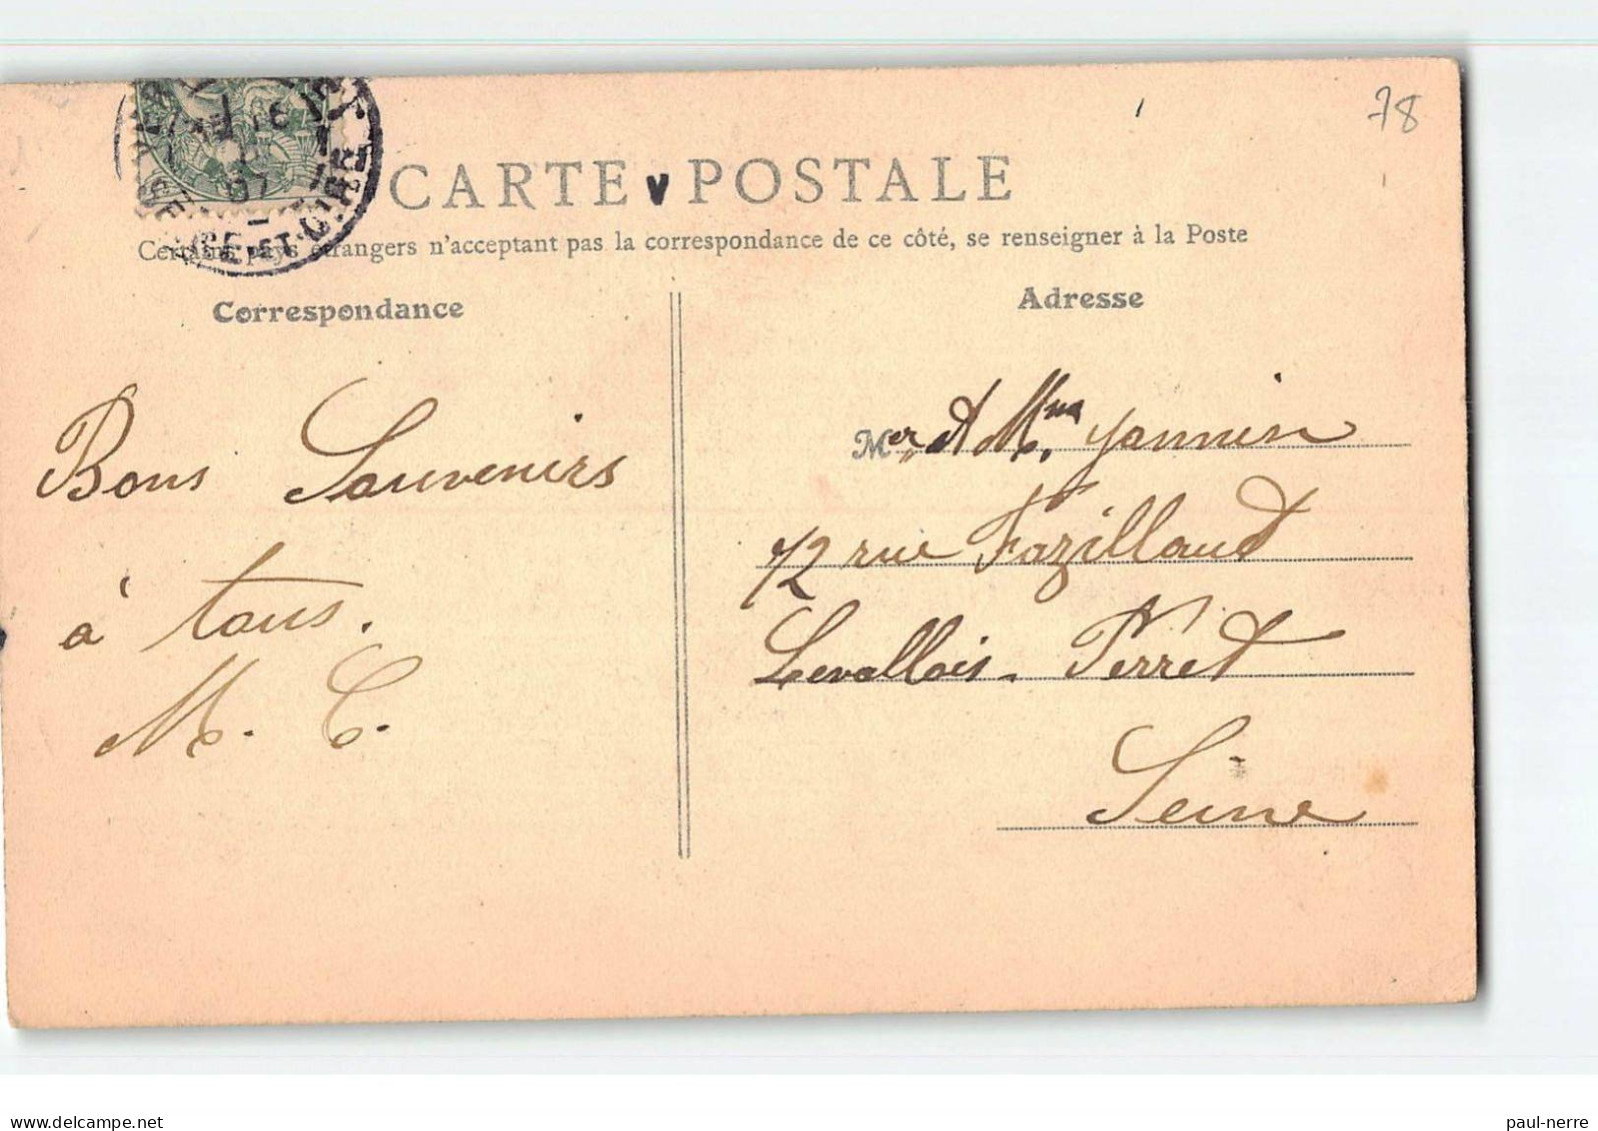 78
CARTE POSTALE
Certains pays étrangers n'acceptent pas la correspondance de ce côté, se renseigner à la Poste
Correspondance
Bons Souvenirs
à tous.
M. C.
Adresse
Mer et Mme Jannin
72 rue Fazillaud
Levallois-Perret
Seine
SEINE-ET-OISE
07
paul-nerre